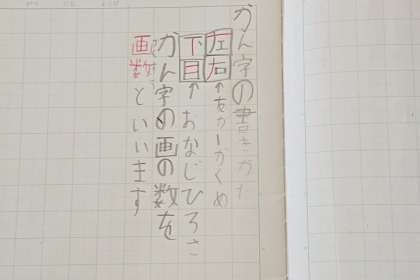 かん字の書きかた
左右↑右が一かくめ
下目↑おなじひろさ
かん字の画の数を
画数といいます